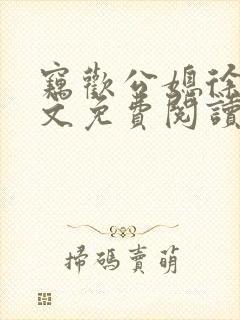 竊歡公媳徐
文免費閱讀
掃碼賣萌